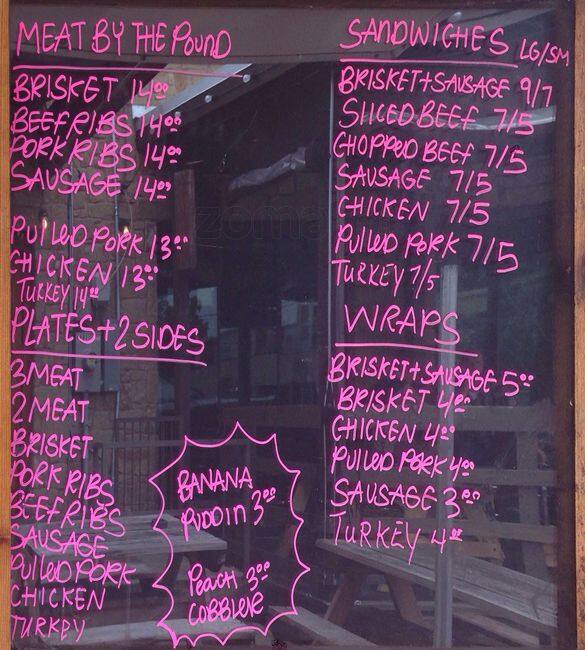 MEAT BY THE POUND
BRISKET 14.00
BEEF RIBS 14.00
PORK RIBS 14.00
SAUSAGE 14.00
PULLED PORK 13.00
CHICKEN 13.00
TURKEY 14.00
PLATES + 2 SIDES
3 MEAT
2 MEAT
BRISKET
PORK RIBS
BEEF RIBS
SAUSAGE
PULLED PORK
CHICKEN
TURKEY
BANANA
PUDDIN 3.00
PEACH 3.00
COBBLER
SANDWICHES LG/SM
BRISKET + SAUSAGE 9/7
SLICED BEEF 7/5
CHOPPED BEEF 7/5
SAUSAGE 7/5
CHICKEN 7/5
PULLED PORK 7/5
TURKEY 7/5
WRAPS
BRISKET + SAUSAGE 5.00
BRISKET 4.00
CHICKEN 4.00
PULLED PORK 4.00
SAUSAGE 3.00
TURKEY 4.00